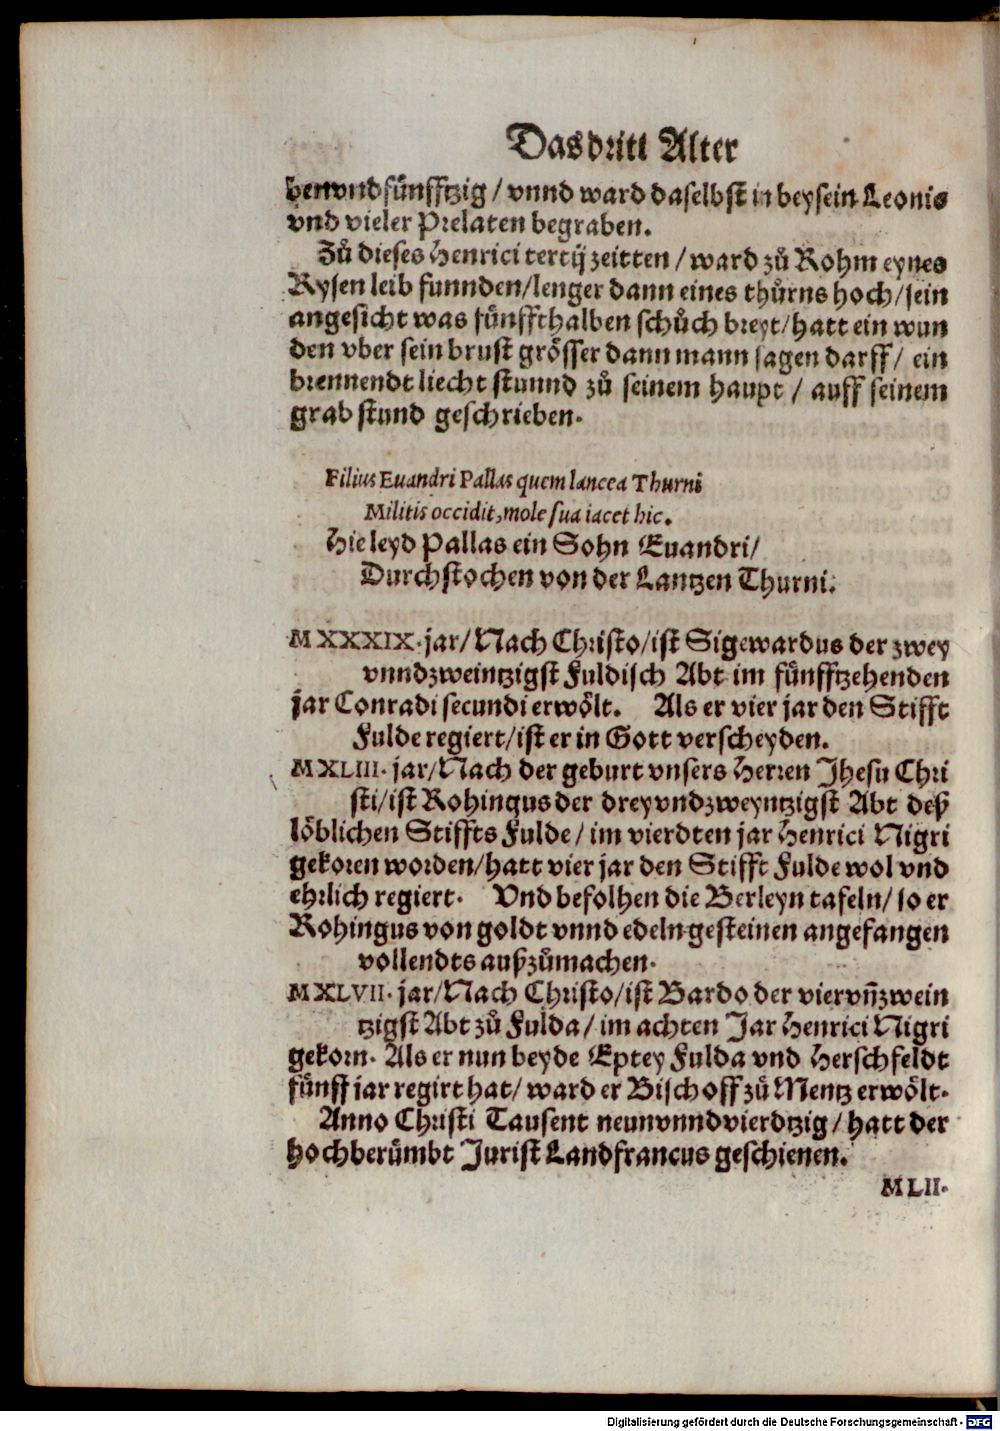 Das dritt Alter
benvnd fünfftzig / vnnd ward daselbst in beysein Leonis
vnd vieler Prelaten begraben.
Zů dieses Henrici tertij zeitten / ward zů Rohm eynes
Rysen leib funnden / lenger dann eines thůrns hoch / sein
angesicht was fünffthalben schůch breyt / hatt ein wun
den vber sein brust grösser dann mann sagen darff / ein
brennendt liecht stunnd zů seinem haupt / auff seinem
grab stund geschrieben.
Filius Euandri Pallas quem lancea Thurni
Militis occidit, mole sua iacet hic.
Hie leyd Pallas ein Sohn Euandri /
Durchstochen von der Lantzen Thurni.
MXXXIX. jar / Nach Christo / ist Sigewardus der zwey
vnndzweintzigst Fuldisch Abt im fünfftzehenden
jar Conradi secundi erwölt. Als er vier jar den Stifft
Fulde regiert / ist er in Gott verscheyden.
MXLIII. jar / Nach der geburt vnsers Herren Jhesu Chri
sti / ist Rohingus der dreyvndzweyntzigst Abt deß
löblichen Stiffts Fulde / im vierdten jar Henrici Nigri
gekoren worden / hatt vier jar den Stifft Fulde wol vnd
ehrlich regiert. Vnd befolhen die Berleyn tafeln / so er
Rohingus von goldt vnnd edeln gesteinen angefangen
vollendts außzůmachen.
MXLVII. jar / Nach Christo / ist Bardo der viervn̄zwein
tzigst Abt zů Fulda / im achten Jar Henrici Nigri
gekorn. Als er nun beyde Eptey Fulda vnd Herschfeldt
fünff jar regirt hat / ward er Bischoff zů Mentz erwölt.
Anno Christi Tausent neunvnndvierdtzig / hatt der
hochberümbt Jurist Landfrancus geschienen.
MLII.
Digitalisierung gefördert durch die Deutsche Forschungsgemeinschaft - DFG